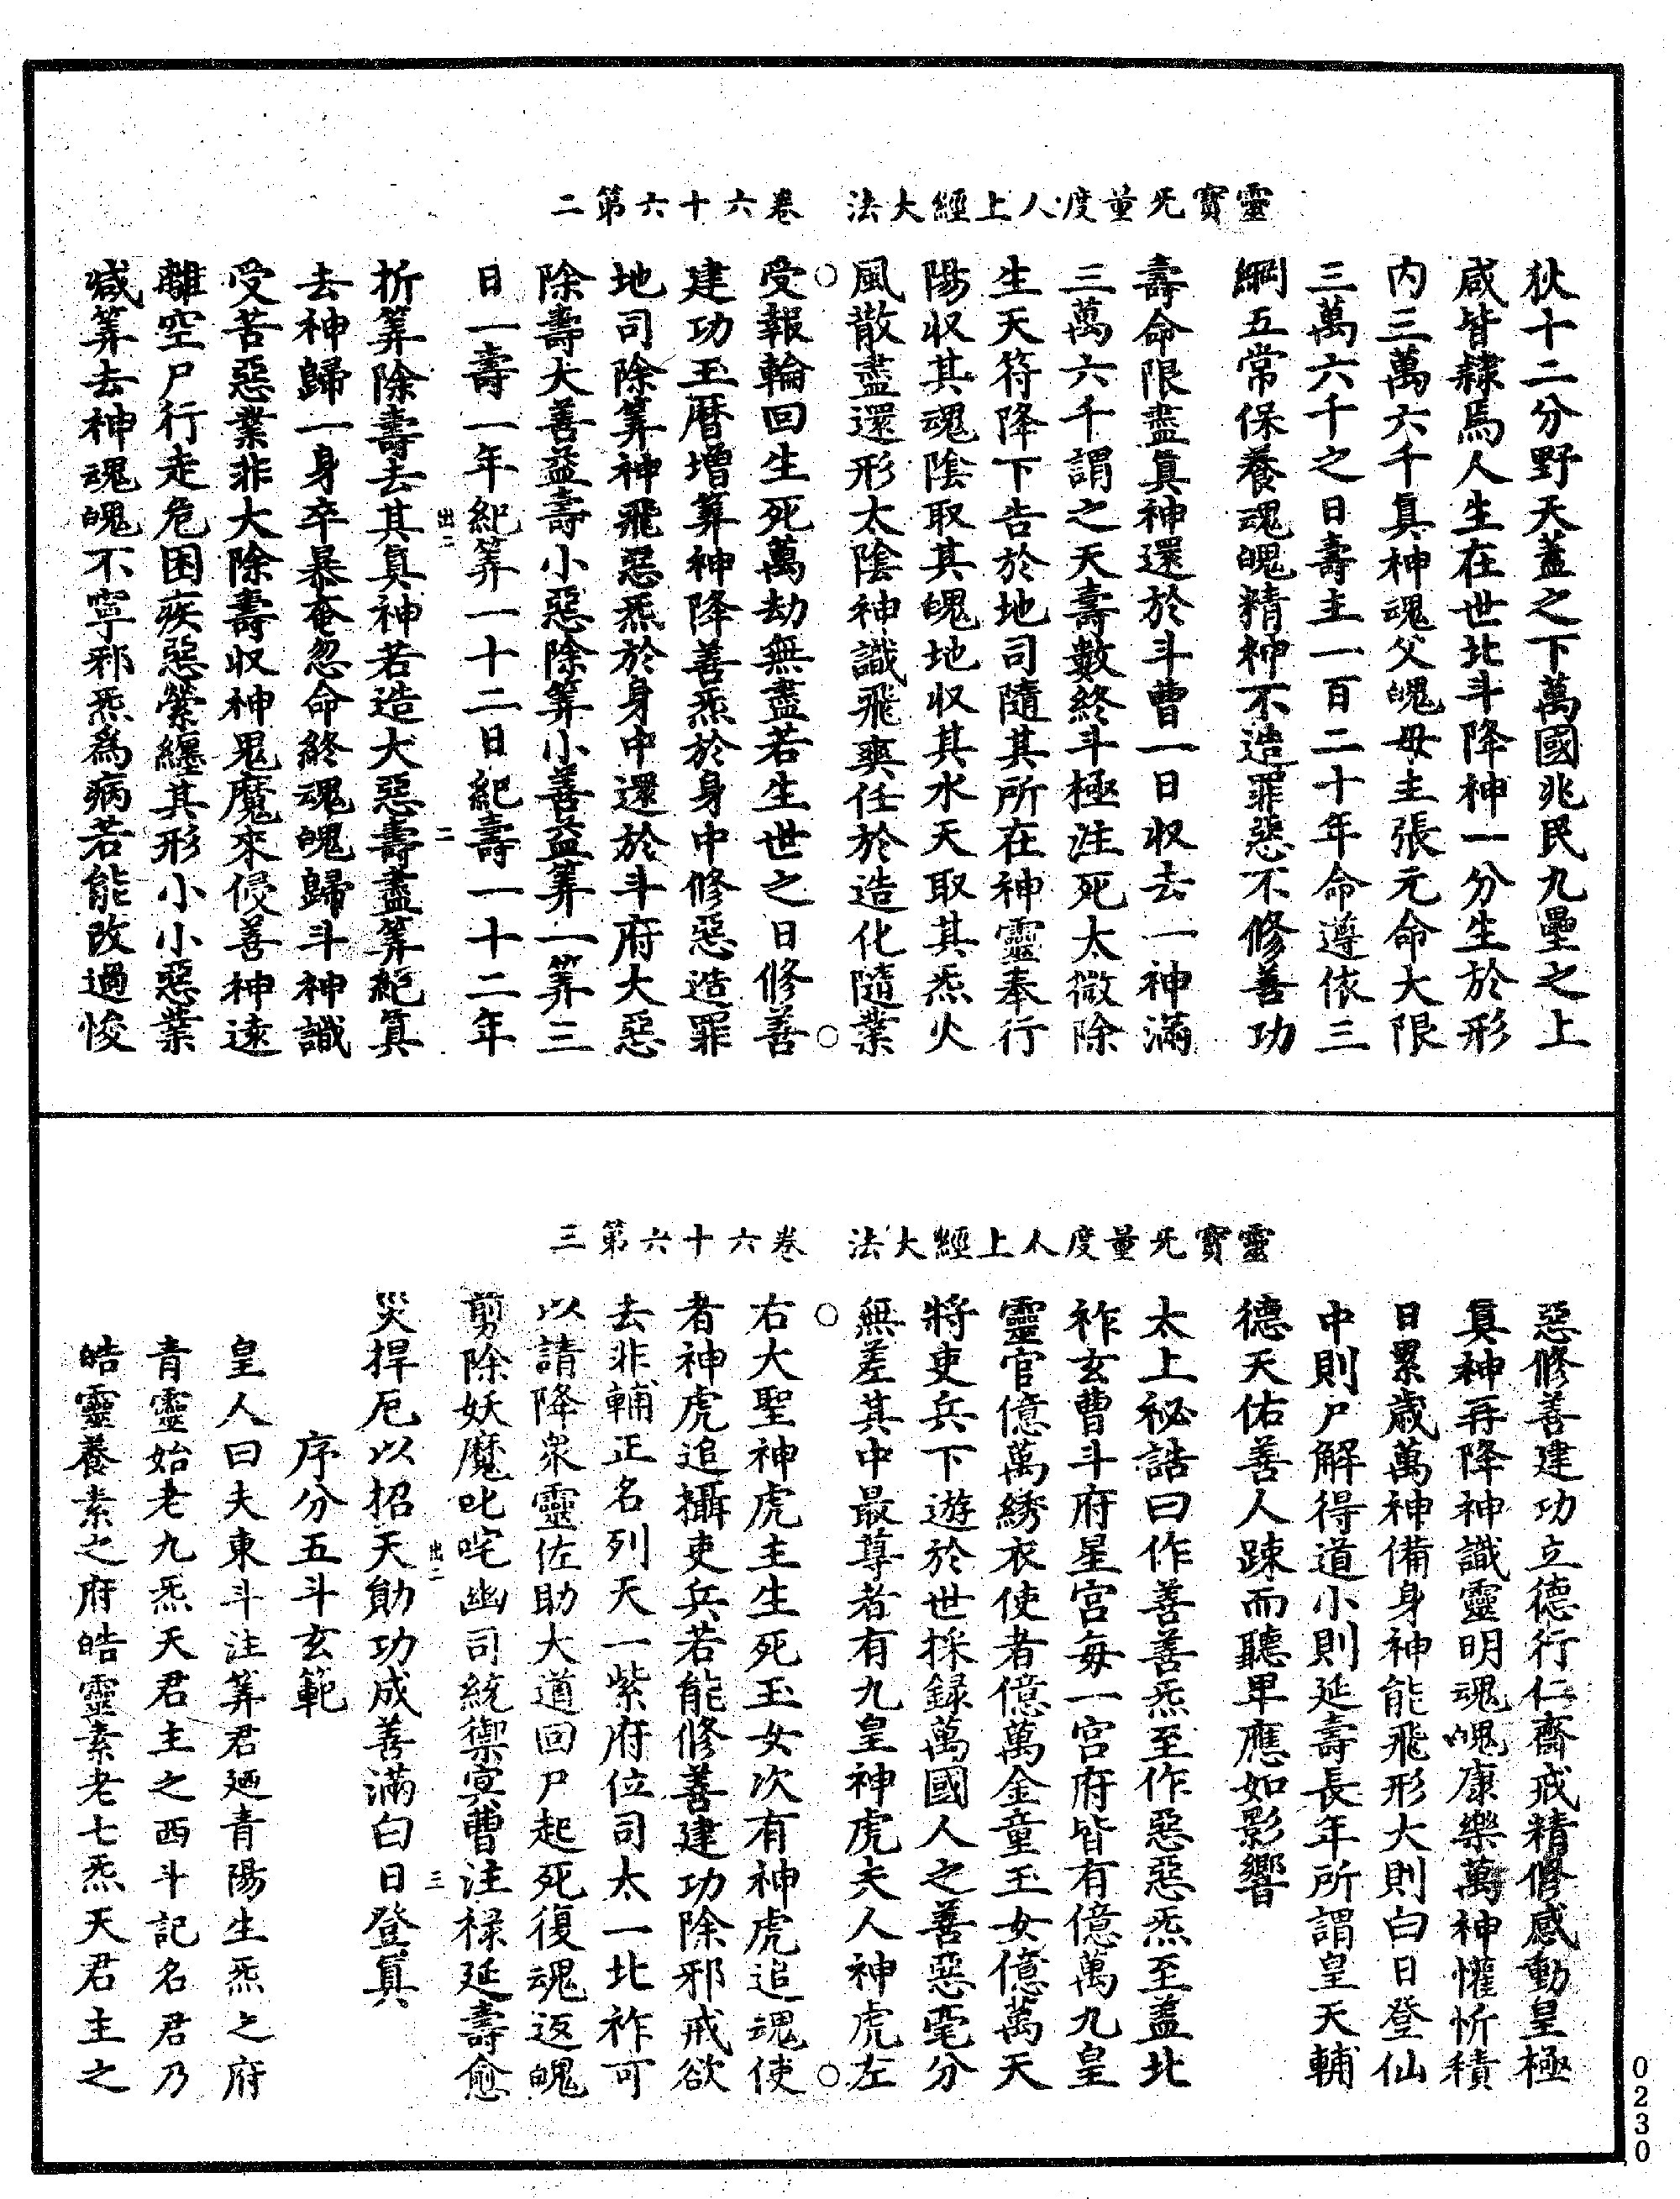 靈寶旡量度人上經大法　卷六十六第二
狄十二分野天蓋之下萬國兆民九壘之上
咸皆隸焉人生在世北斗降神一分生於形
内三萬六千真神魂父魄母主張元命大限
三萬六千之日壽主一百二十年命遵依三
綱五常保養魂魄精神不造罪惡不修善功
壽命限盡真神還於斗曹一日收去一神滿
三萬六千謂之天壽數終斗極注死太微除
生天符降下告於地司隨其所在神靈奉行
陽收其魂陰取其魄地收其水天取其炁火
風散盡還形太陰神識飛爽任於造化隨業
受報輪回生死萬劫無盡若生世之日修善
建功玉曆增筭神降善炁於身中修惡造罪
地司除筭神飛惡炁於身中還於斗府大惡
除壽大善益壽小惡除筭小善益筭一筭三
日一壽一年紀筭一十二日紀壽一十二年
出二　二
折筭除壽去其真神若造大惡壽盡筭絕真
去神歸一身卒暴奄忽命終魂魄歸斗神識
受苦惡業非大除壽收神鬼魔來侵善神遠
離空尸行走危困疾惡縈纏其形小小惡業
減筭去神魂魄不寧邪炁爲病若能改過悛
靈寶旡量度人上經大法　卷六十六第三
惡修善建功立德行仁齋戒精修感動皇極
真神再降神識靈明魂魄康樂萬神懽忻積
日累歲萬神備身神能飛形大則白日登仙
中則尸解得道小則延壽長年所謂皇天輔
德天佑善人踈而聽卑應如影響
太上祕誥曰作善善炁至作惡惡炁至蓋北
祚玄曹斗府星宮每一宮府皆有億萬九皇
靈官億萬綉衣使者億萬金童玉女億萬天
將吏兵下遊於世採録萬國人之善惡毫分
無差其中最尊者有九皇神虎夫人神虎左
右大聖神虎主生死玉女次有神虎追魂使
者神虎追攝吏兵若能修善建功除邪戒欲
去非輔正名列天一紫府位司太一北祚可
以請降衆靈佐助大道回尸起死復魂返魄
剪除妖魔叱咤幽司統禦冥曹注禄延壽愈
出二　三
災捍厄以招天勛功成善滿白日登真
序分五斗玄範
皇人曰夫東斗注筭君廼青陽生炁之府
青靈始老九炁天君主之西斗記名君乃
皓靈養素之府皓靈素老七炁天君主之
0230